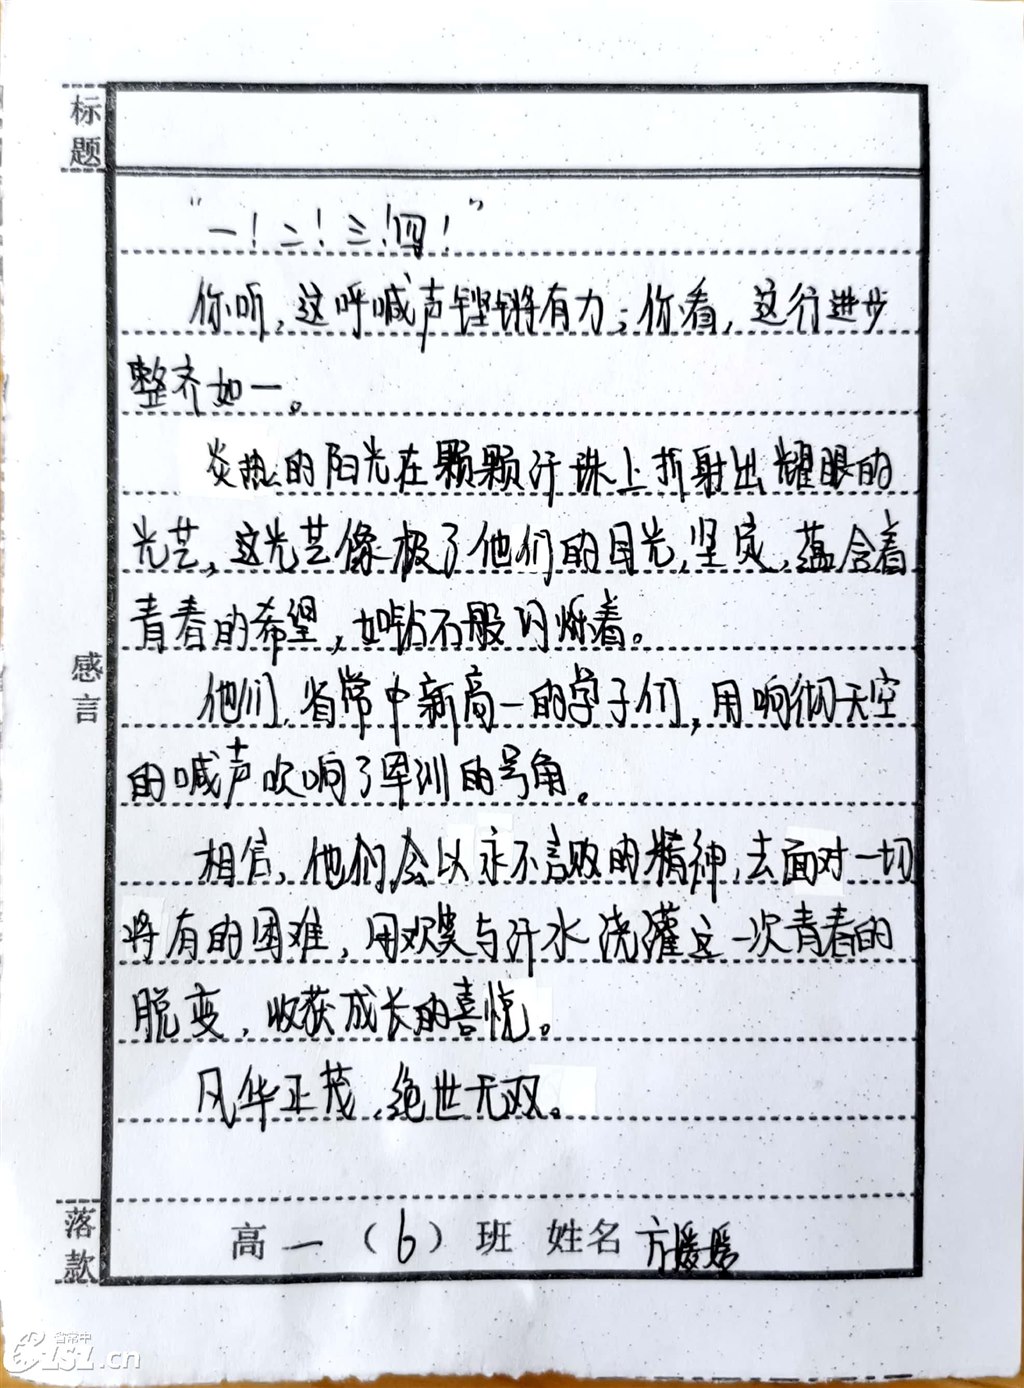 标题
"一！二！三！四！"
你听，这呼喊声铿锵有力；你看，这行进步
整齐如一。
炎热的阳光在颗颗汗珠上折射出耀眼的
光芒，这光芒像极了他们的目光，坚定，蕴含着
青春的希望，如钻石般闪烁着。
感言
他们，省常中新高一的学子们，用响彻天空
的喊声吹响了军训的号角。
相信，他们会以永不言败的精神，去面对一切
将有的困难，用欢笑与汗水浇灌这一次青春的
脱变，收获成长的喜悦。
风华正茂，绝世无双。
落款
高一（6）班 姓名 方媛媛
省常中
1S1.cn